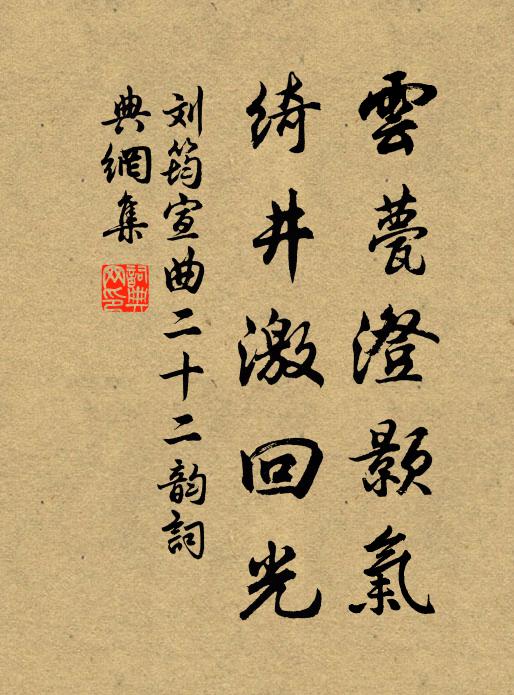 雲甍澄顥氣
綺井激回光
刘筠宣曲二十二韵詞
典網集
詞典网印